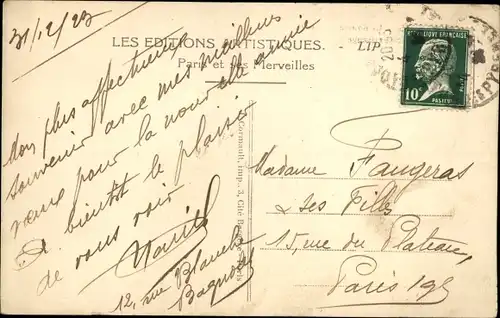 31/12/23
LES EDITIONS ARTISTIQUES. LIP
Paris et ses Merveilles
REPUBLIQUE FRANÇAISE
10c
PASTEUR
Mon plus affectueux
souvenir avec mes meilleurs
vœux pour la nouvelle année
A bientôt le plaisir
de vous voir
12, rue Blanche
Bagnolet
Cormault, imp., 3, Cité
Madame Faugeras
& ses Filles
15, rue du Plateau,
Paris 19e